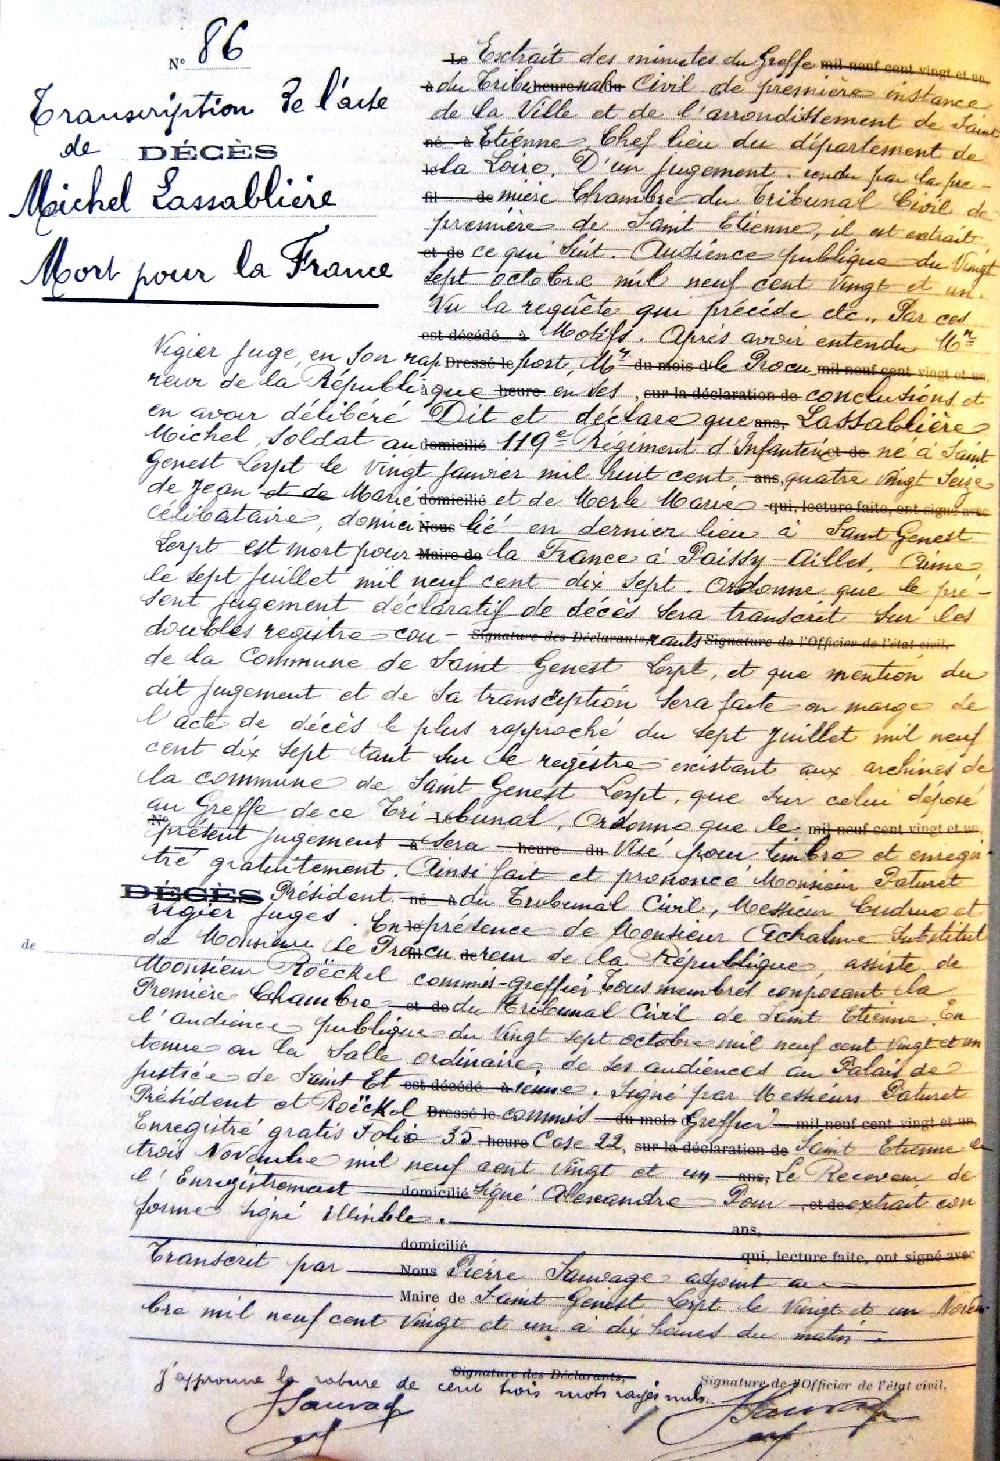 N° 86
Transcription de l'acte
de DÉCÈS
Michel Lassablière
Mort pour la France
Le Extrait des minutes du Greffe mil neuf cent vingt et un,
à du Tribu heure nal du Civil de première instance
de la Ville et de l'arrondissement de Saint
né à Etienne, Chef lieu du département de
la Loire. D'un jugement rendu par la pre-
fil de mière Chambre du Tribunal Civil de
première de Saint Etienne, il est extrait
et de ce qui suit. Audience publique du Vingt
sept octobre mil neuf cent vingt et un.
Vu la requête qui précède etc.. Par ces
est décédé à Motifs. Après avoir entendu Mr
Vigier juge en son rap Dressé le port, Mr du mois de le Procu mil neuf cent vingt et un,
reur de la République heure en ses, sur la déclaration de conclusions et
en avoir délibéré Dit et déclare que ans, Lassablière
Michel, Soldat au domicilié 119e Régiment d'Infanterie et de né à Saint
Genest Lerpt le vingt janvier mil huit cent, ans, quatre vingt seize
de Jean et de Marie domicilié et de Merle Marie qui, lecture faite, ont signé avec
célibataire, domici Nous lié en dernier lieu à Saint Genest
Lerpt est mort pour Maire de la France à Paissy Ailles, Aisne,
le sept juillet mil neuf cent dix sept. Ordonne que le pré-
sent jugement déclaratif de décès sera transcrit sur les
doubles registre cou- Signature des Déclarants, rants Signature de l'Officier de l'état civil,
de la Commune de Saint Genest Lerpt, et que mention du
dit jugement et de sa transcription sera faite en marge de
l'acte de décès le plus rapproché du sept juillet mil neuf
cent dix sept tant sur le registre existant aux archives de
la commune de Saint Genest Lerpt, que sur celui déposé
au Greffe de ce Tri- bunal. Ordonne que le mil neuf cent vingt et un,
N° présent jugement à sera heure du Visé pour timbre et enregis-
tré gratuitement. Ainsi fait et prononcé Monsieur Paturet
DÉCÈS Président né à du Tribunal Civil, Messieurs et
Vigier juges. En le présence de Monsieur Achalme Substitut
de de Monsieur le Procu de reur de la République, assisté de
Monsieur Roëckel commis-greffier Tous membres composant la
Première Chambre et de du Tribunal Civil de Saint Etienne. En
l'audience publique du vingt sept octobre mil neuf cent vingt et un
tenue en la Salle ordinaire, de ses audiences au Palais de
justice de Saint Et est décédé à ienne. Signé par Messieurs Paturet
Président et Roëckel Dressé le commis du mois Greffier mil neuf cent vingt et un,
Enregistré gratis Folio 35 heure Case 22, sur la déclaration de Saint Etienne le
trois Novembre mil neuf cent vingt et un ans, Le Receveur de
l'Enregistrement domicilié Signé Alexandre Pour et de extrait con
forme signé illisible.
ans,
domicilié qui, lecture faite, ont signé avec
Transcrit par Nous Pierre Sauvage adjoint au
Maire de Saint Genest Lerpt le vingt et un Novem
bre mil neuf cent vingt et un à dix heures du matin
Signature des Déclarants, Signature de l'Officier de l'état civil,
J'approuve la rature de cent trois mots rayés nuls.
JSauvage JSauvage